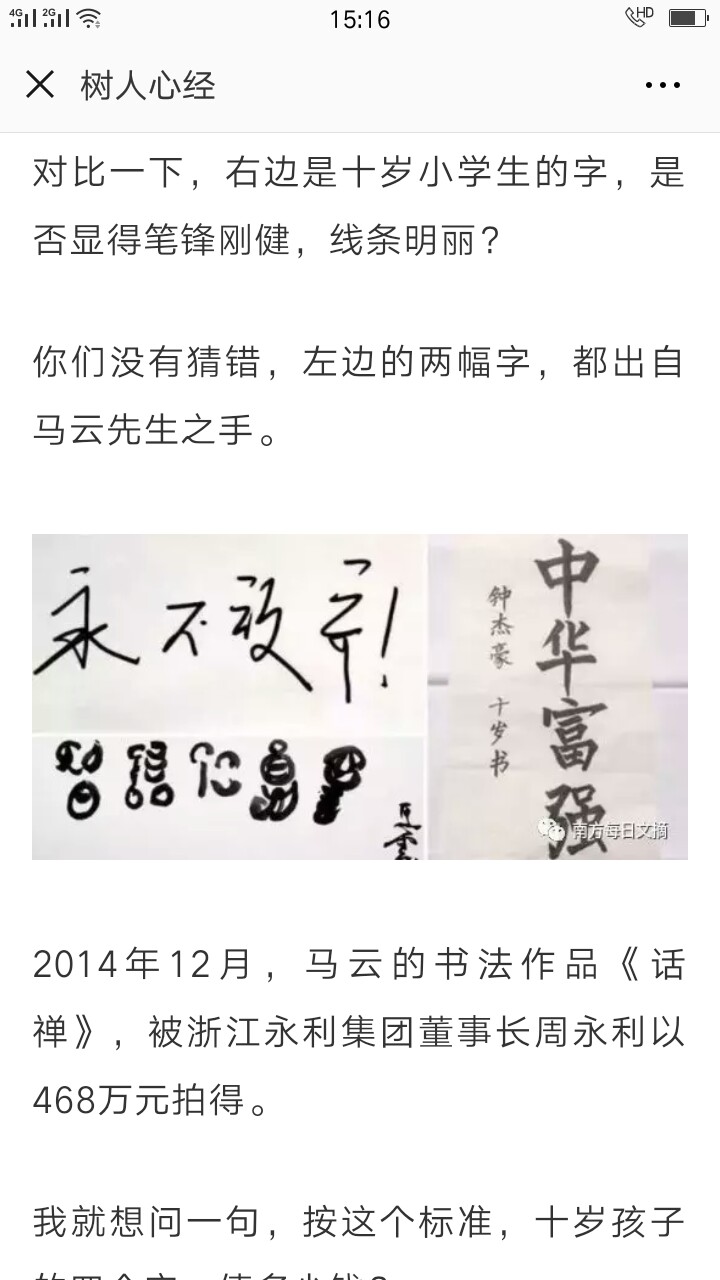 4G 2G 15:16 HD
树人心经
对比一下，右边是十岁小学生的字，是
否显得笔锋刚健，线条明丽？
你们没有猜错，左边的两幅字，都出自
马云先生之手。
永不放弃！
马云
中华富强
钟杰豪 十岁书
南方每日文摘
2014年12月，马云的书法作品《话
禅》，被浙江永利集团董事长周永利以
468万元拍得。
我就想问一句，按这个标准，十岁孩子